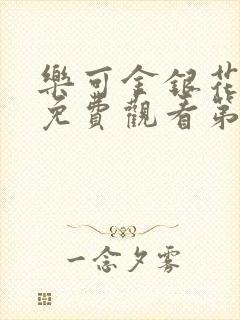 樂可金銀花
免費觀看第
一念夕霧